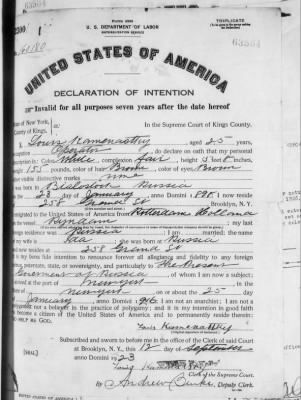 TRIPLICATE
U. S. DEPARTMENT OF LABOR
NATURALIZATION SERVICE
UNITED STATES OF AMERICA
DECLARATION OF INTENTION
Invalid for all purposes seven years after the date hereof
State of New York,
County of Kings, ss:
In the Supreme Court of Kings County.
aged 25 years,
occupation Operator, do declare on oath that my personal
description is: Color White, complexion Fair, height 5 feet 8 inches,
weight 155 pounds, color of hair Brown, color of eyes Brown
other visible distinctive marks
was born in Bialostock Russia
on the 23 day of January, anno Domini 1898; I now reside
at 258 Grand St Brooklyn, N. Y.
I emigrated to the United States of America from Rotterdam Holland
on the vessel Ryndam; my last
foreign residence was Russia; I am married; the name
of my wife is Ida; she was born at Russia
and now resides at 258 Grand St
It is my bona fide intention to renounce forever all allegiance and fidelity to any foreign
prince, potentate, state, or sovereignty, and particularly to The Present
Government of Russia, of whom I am now a subject;
arrived at the port of New York, in the
of New York, on or about the 25 day
of January, anno Domini 1916; I am not an anarchist; I am not a
polygamist nor a believer in the practice of polygamy; and it is my intention in good faith
to become a citizen of the United States of America and to permanently reside therein:
SO HELP ME GOD.
Subscribed and sworn to before me in the office of the Clerk of said Court
[SEAL] at Brooklyn, N. Y., this 12 day of September
anno Domini 1923
Clerk of the Supreme Court.
By Andrew Burke, Deputy Clerk.